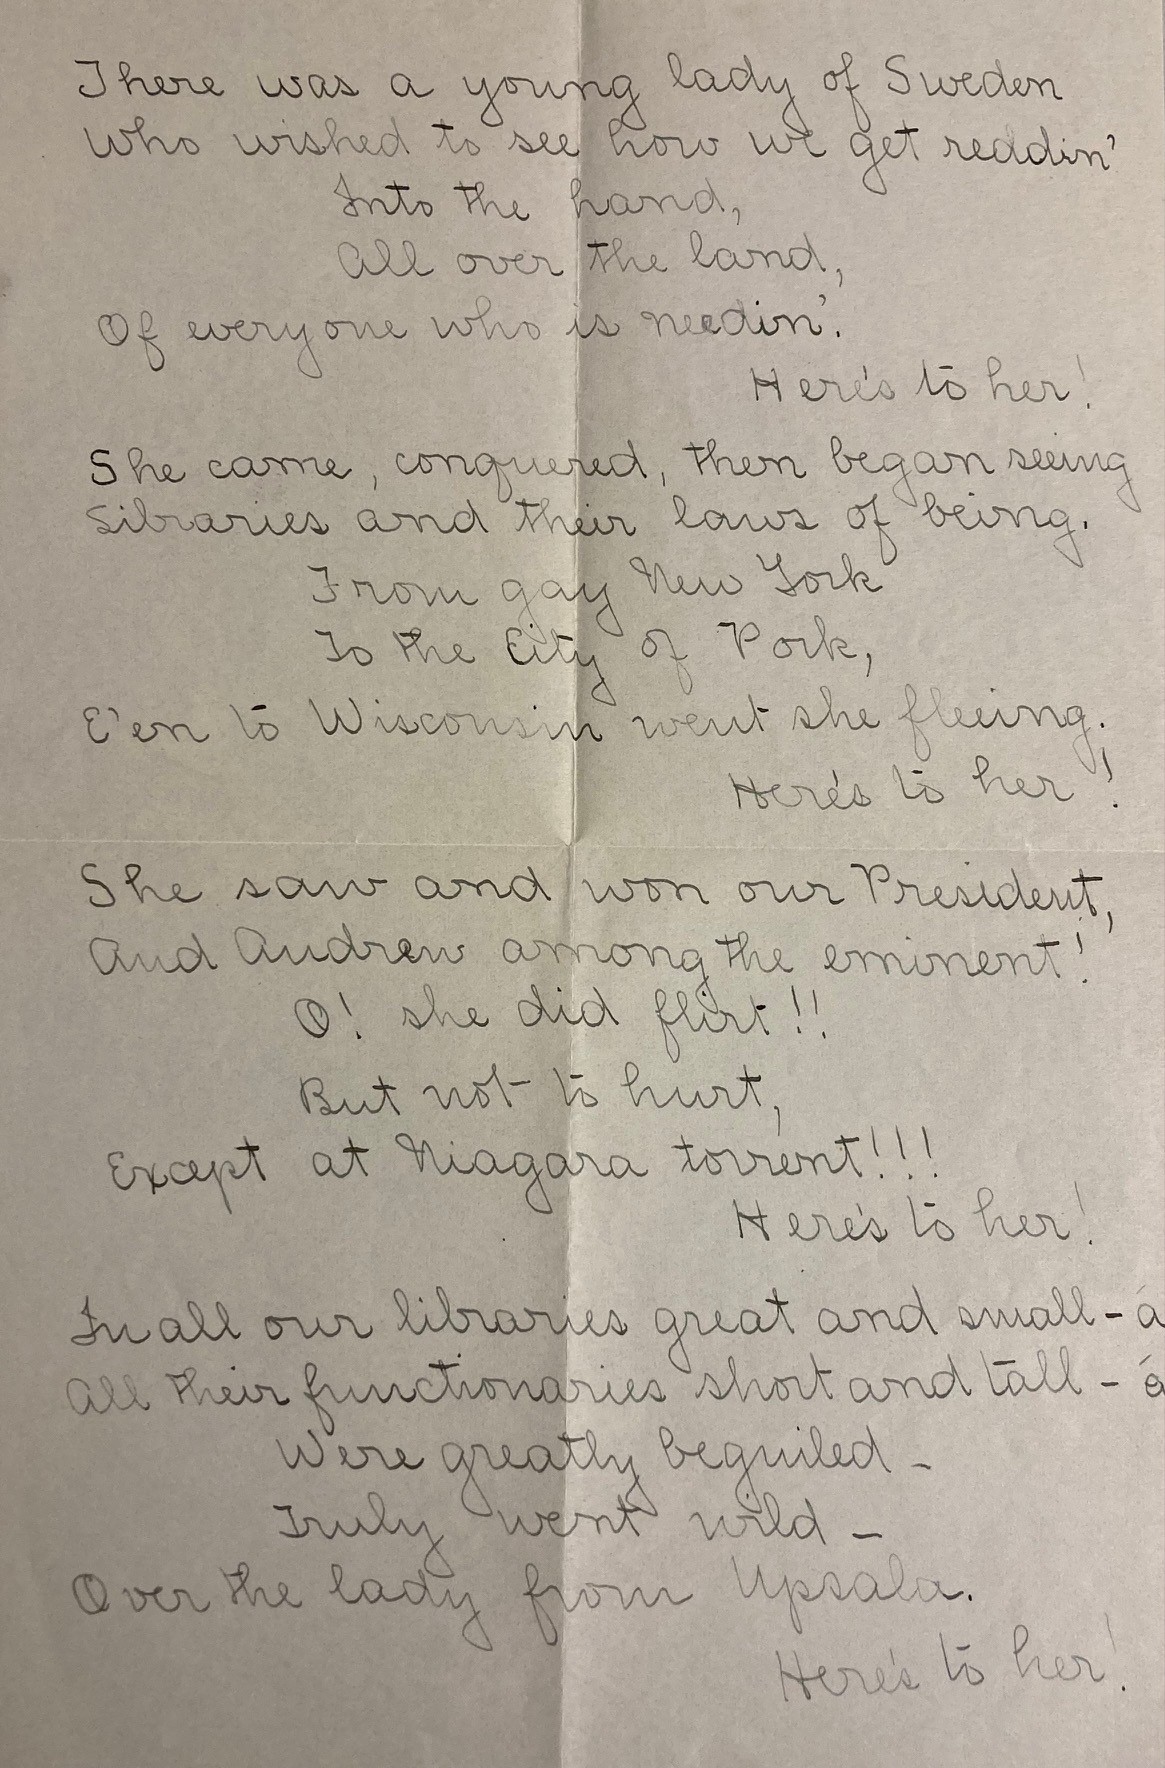 There was a young lady of Sweden
Who wished to see how we get reddin'
Into the hand,
All over the land,
Of everyone who is needin'.
Here's to her!
She came, conquered, then began seeing
Libraries and their laws of being.
From gay New York
To the City of Pork,
E'en to Wisconsin went she fleeing.
Here's to her!
She saw and won our President,
And Andrew among the eminent!
O! she did flirt!!
But not to hurt,
Except at Niagara torrent!!!
Here's to her!
In all our libraries great and small-á
All their functionaries short and tall-á
Were greatly beguiled-
Truly went wild-
Over the lady from Upsala.
Here's to her!